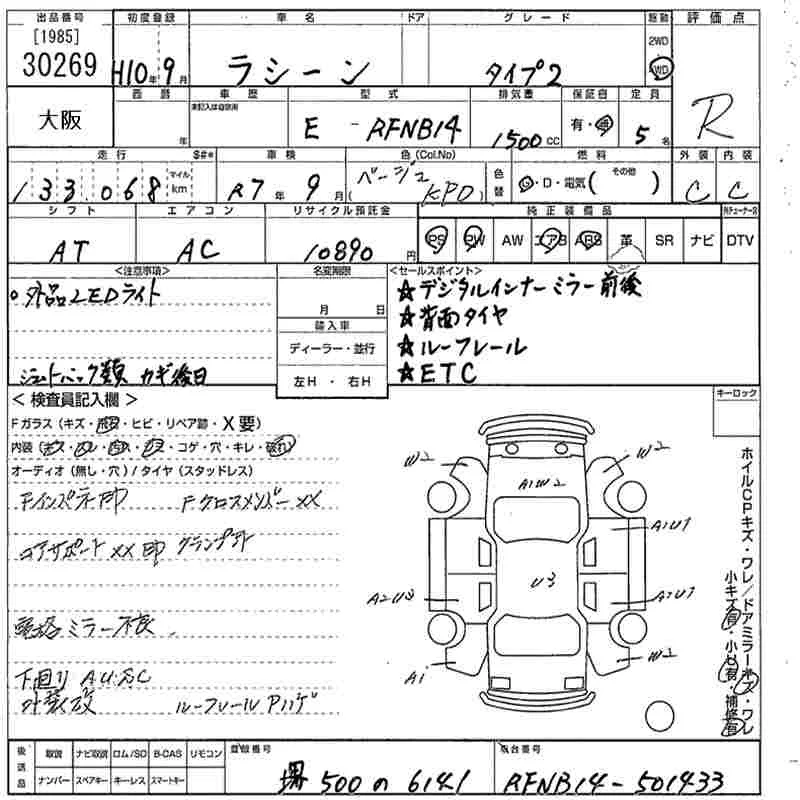 出品番号 初度登録 車名 ドア グレード 駆動 評価点
[1985]
30269 H10年 9月 ラシーン タイプ2 2WD 4WD R
大阪 西暦 年 車歴 未記入は自家用 型式 E - RFNB14 排気量 1500 CC 保証書 有・無 定員 5名
走行 $#* 車検 色(Col.No) 色替 燃料 外装 内装
133,068 マイル km R7年 9月 ベージュ (KPO) G・D・電気( その他 ) C C
シフト エアコン リサイクル預託金 純正装備品 外チューナー有
AT AC 10890円 PS PW AW エアB ABS 革 SR ナビ DTV
<注意事項> 名変期限 <セールスポイント>
○外品LEDライト 月 日 ☆デジタルインナーミラー前後
輸入車 ☆背面タイヤ
ディーラー・並行 ☆ルーフレール
カギ後日 左H・右H ☆ETC
<検査員記入欄> キーロック
Fガラス(キズ・飛石・ヒビ・リペア跡・X要)
内装( コゲ・穴・キレ・破れ)
オーディオ(無し・穴)/タイヤ(スタッドレス)
FクロスメンバーXX
コアサポートXX
ミラー不良
下回り
ルーフレールPハゲ
W2 W2
A1W2
A1U1
U3
A2U3 A2U1
A1 W2
ホイルCPキズ・ワレ/ドアミラーキズ・ワレ
小キズ有・小U有・補修有
後送品 取説 ナビ取説 ロム/SD B-CAS リモコン 登録番号 車台番号
ナンバー スペアキー キーレス スマートキー 堺 500 の 6141 RFNB14-501433